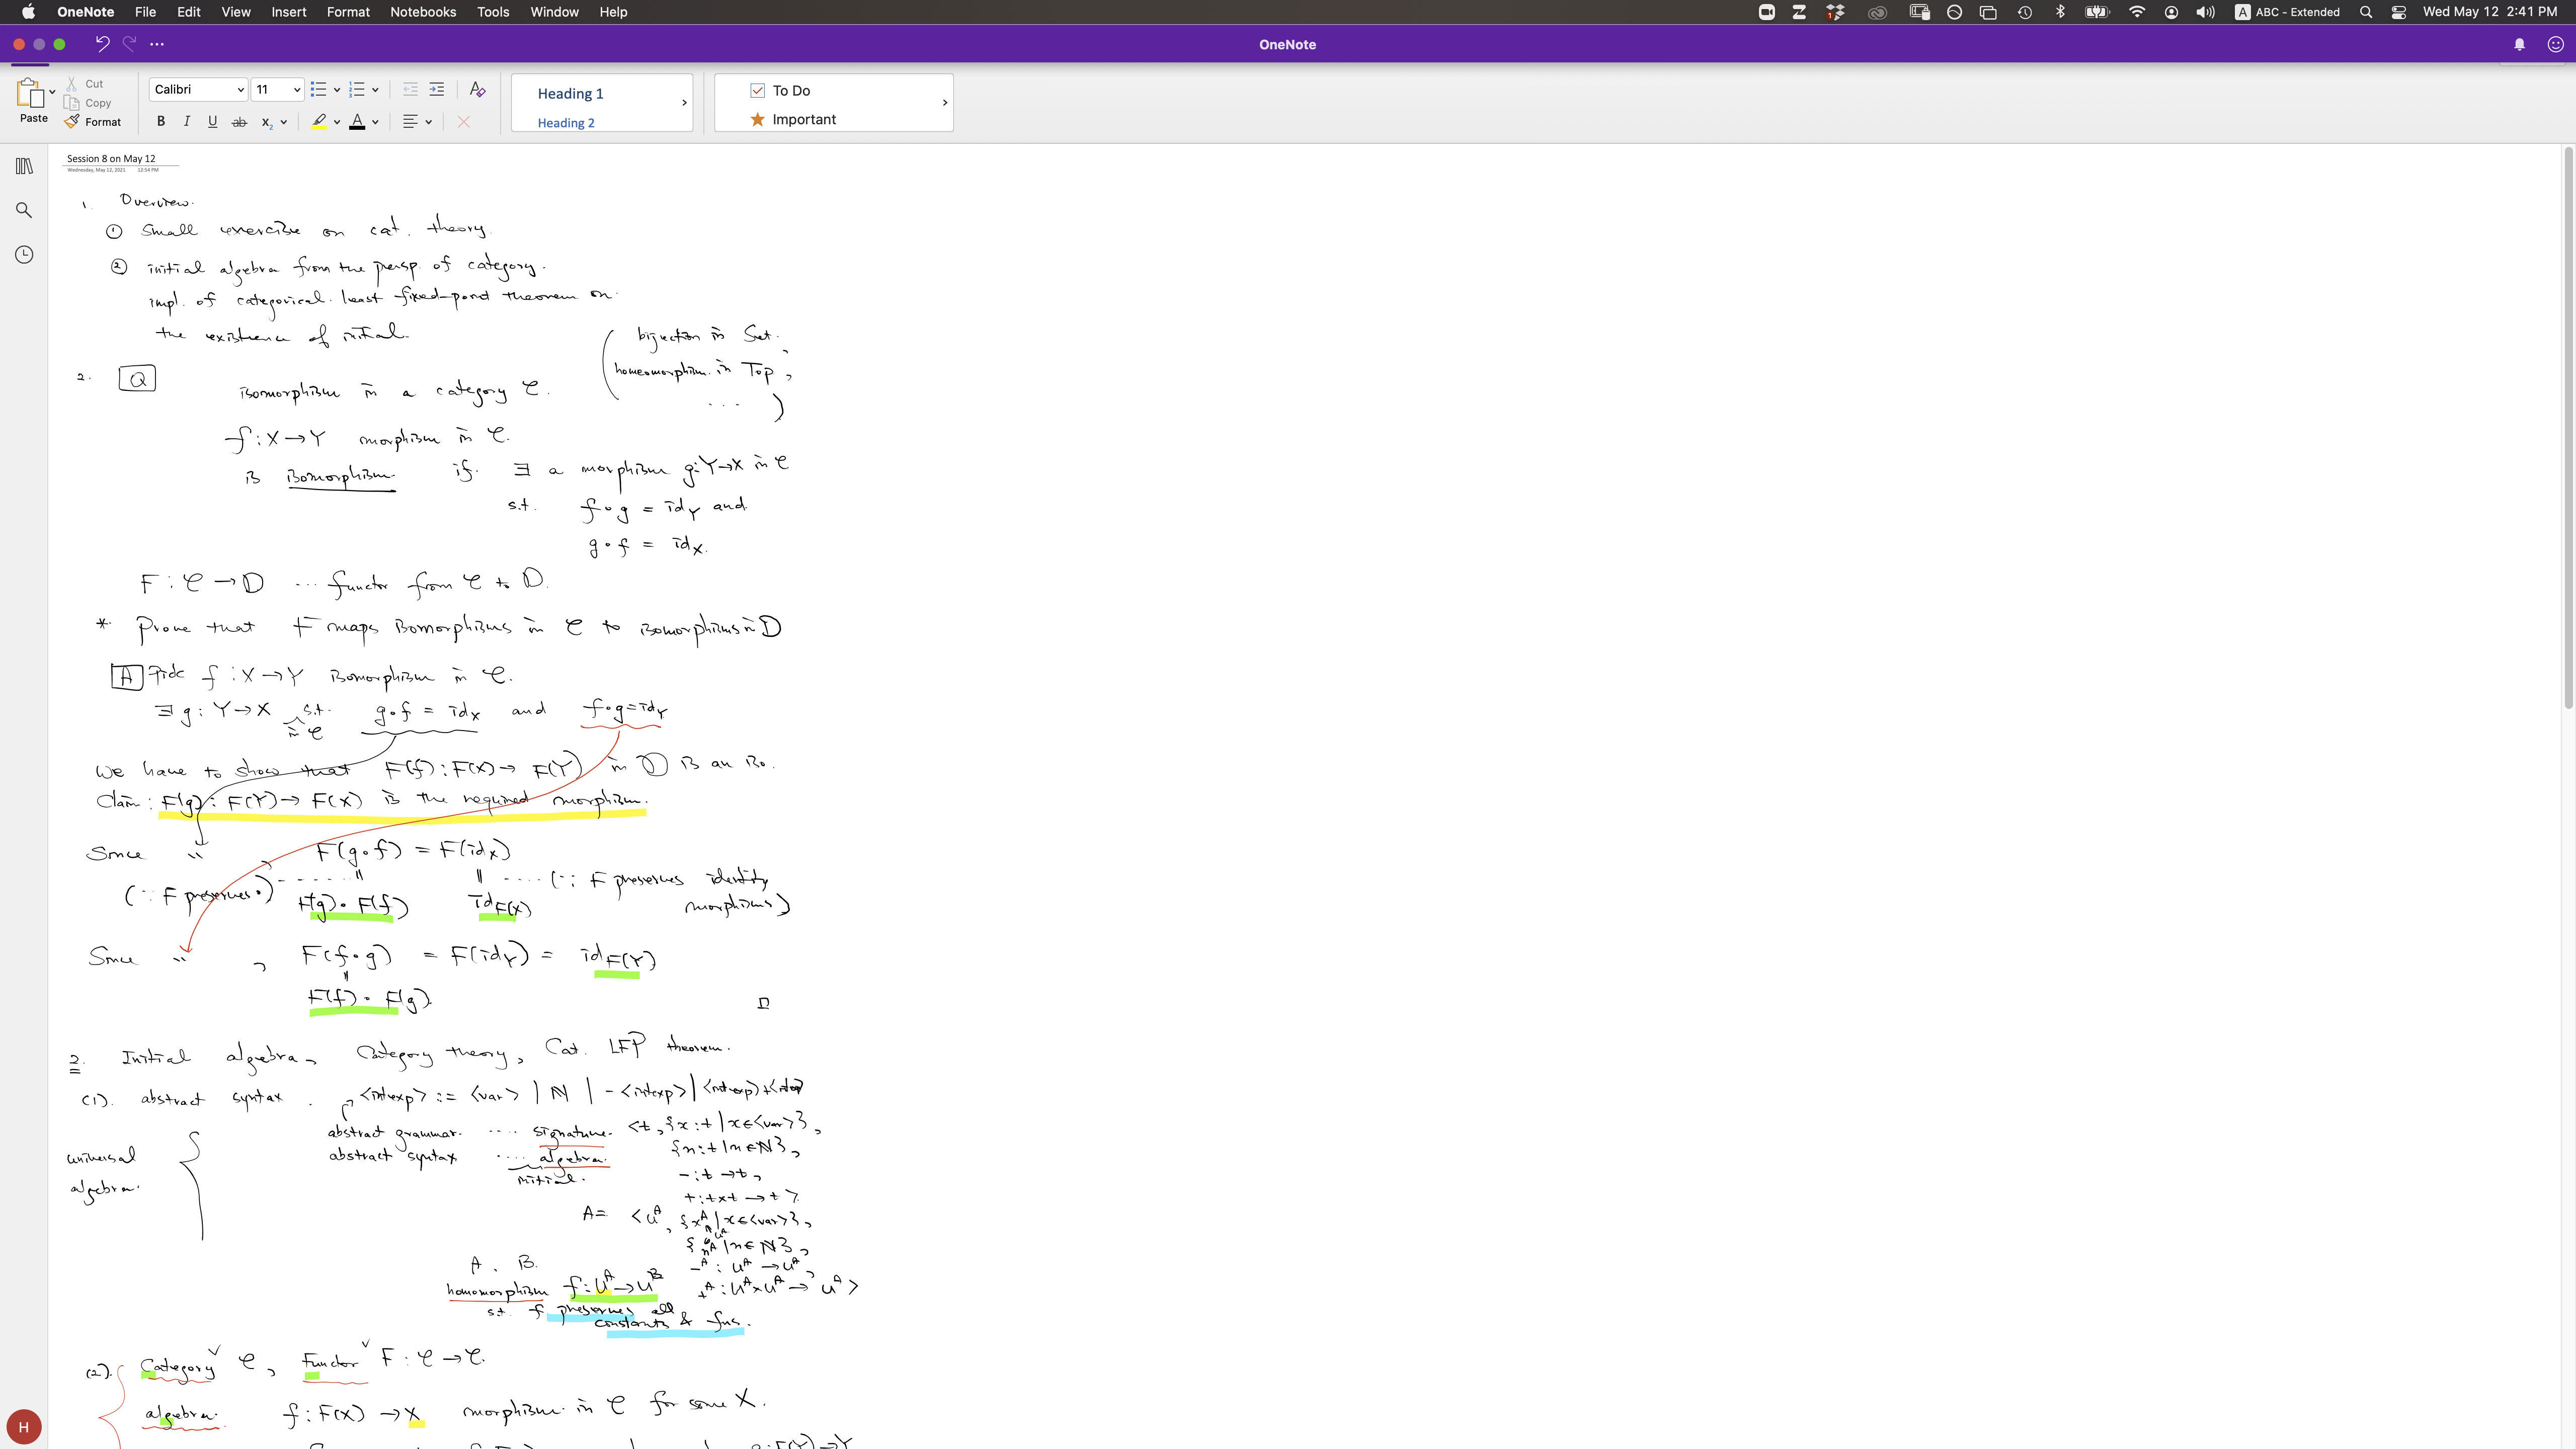 OneNote File Edit View Insert Format Notebooks Tools Window Help
A ABC - Extended Wed May 12 2:41 PM
OneNote
Paste Cut Copy Format
Calibri 11
B I U ab x₂ A
Heading 1
Heading 2
To Do
Important
Session 8 on May 12
Wednesday, May 12, 2021 12:54 PM
1. Overview.
① Small exercise on cat. theory.
② initial algebra from the persp. of category.
impl. of categorical least fixed-point theorem on
the existence of initial.
2. Q
(bijection in Set.
homeomorphism in Top,
...)
isomorphism in a category C.
f : X → Y morphism in C.
is isomorphism if ∃ a morphism g: Y→X in C
s.t. f∘g = id_Y and
g∘f = id_X.
F : C → D ... functor from C to D.
* Prove that F maps isomorphisms in C to isomorphisms in D
A f : X → Y isomorphism in C.
∃ g : Y → X s.t. g∘f = id_X and f∘g = id_Y
in C
We have to show that F(f) : F(X) → F(Y) in D is an iso.
Claim : F(g) : F(Y) → F(X) is the required morphism.
Since " F(g∘f) = F(id_X)
(∵ F preserves ∘) ----- || || .... (∵ F preserves identity
F(g)∘F(f) id_F(X) morphisms)
Since " , F(f∘g) = F(id_Y) = id_F(Y)
||
F(f)∘F(g).
□
2. Initial algebra, Category theory, Cat. LFP theorem.
(1). abstract syntax. <intexp> ::= <var> | ℕ | -<intexp> | <intexp>+<intexp>
abstract grammar. .... signature. <t, {x : t | x∈<var>},
{n : t | n∈ℕ},
abstract syntax .... algebra.
initial.
- : t → t,
+ : t×t → t>
universal
algebra.
A = <U^A, {x^A | x∈<var>},
{n^A | n∈ℕ},
-^A : U^A → U^A,
+^A : U^A × U^A → U^A>
A, B.
homomorphism f : U^A → U^B
s.t. f preserves all
constants & fns.
(2). Category C, Functor F : C → C.
algebra. f : F(X) → X morphism in C for some X.
H